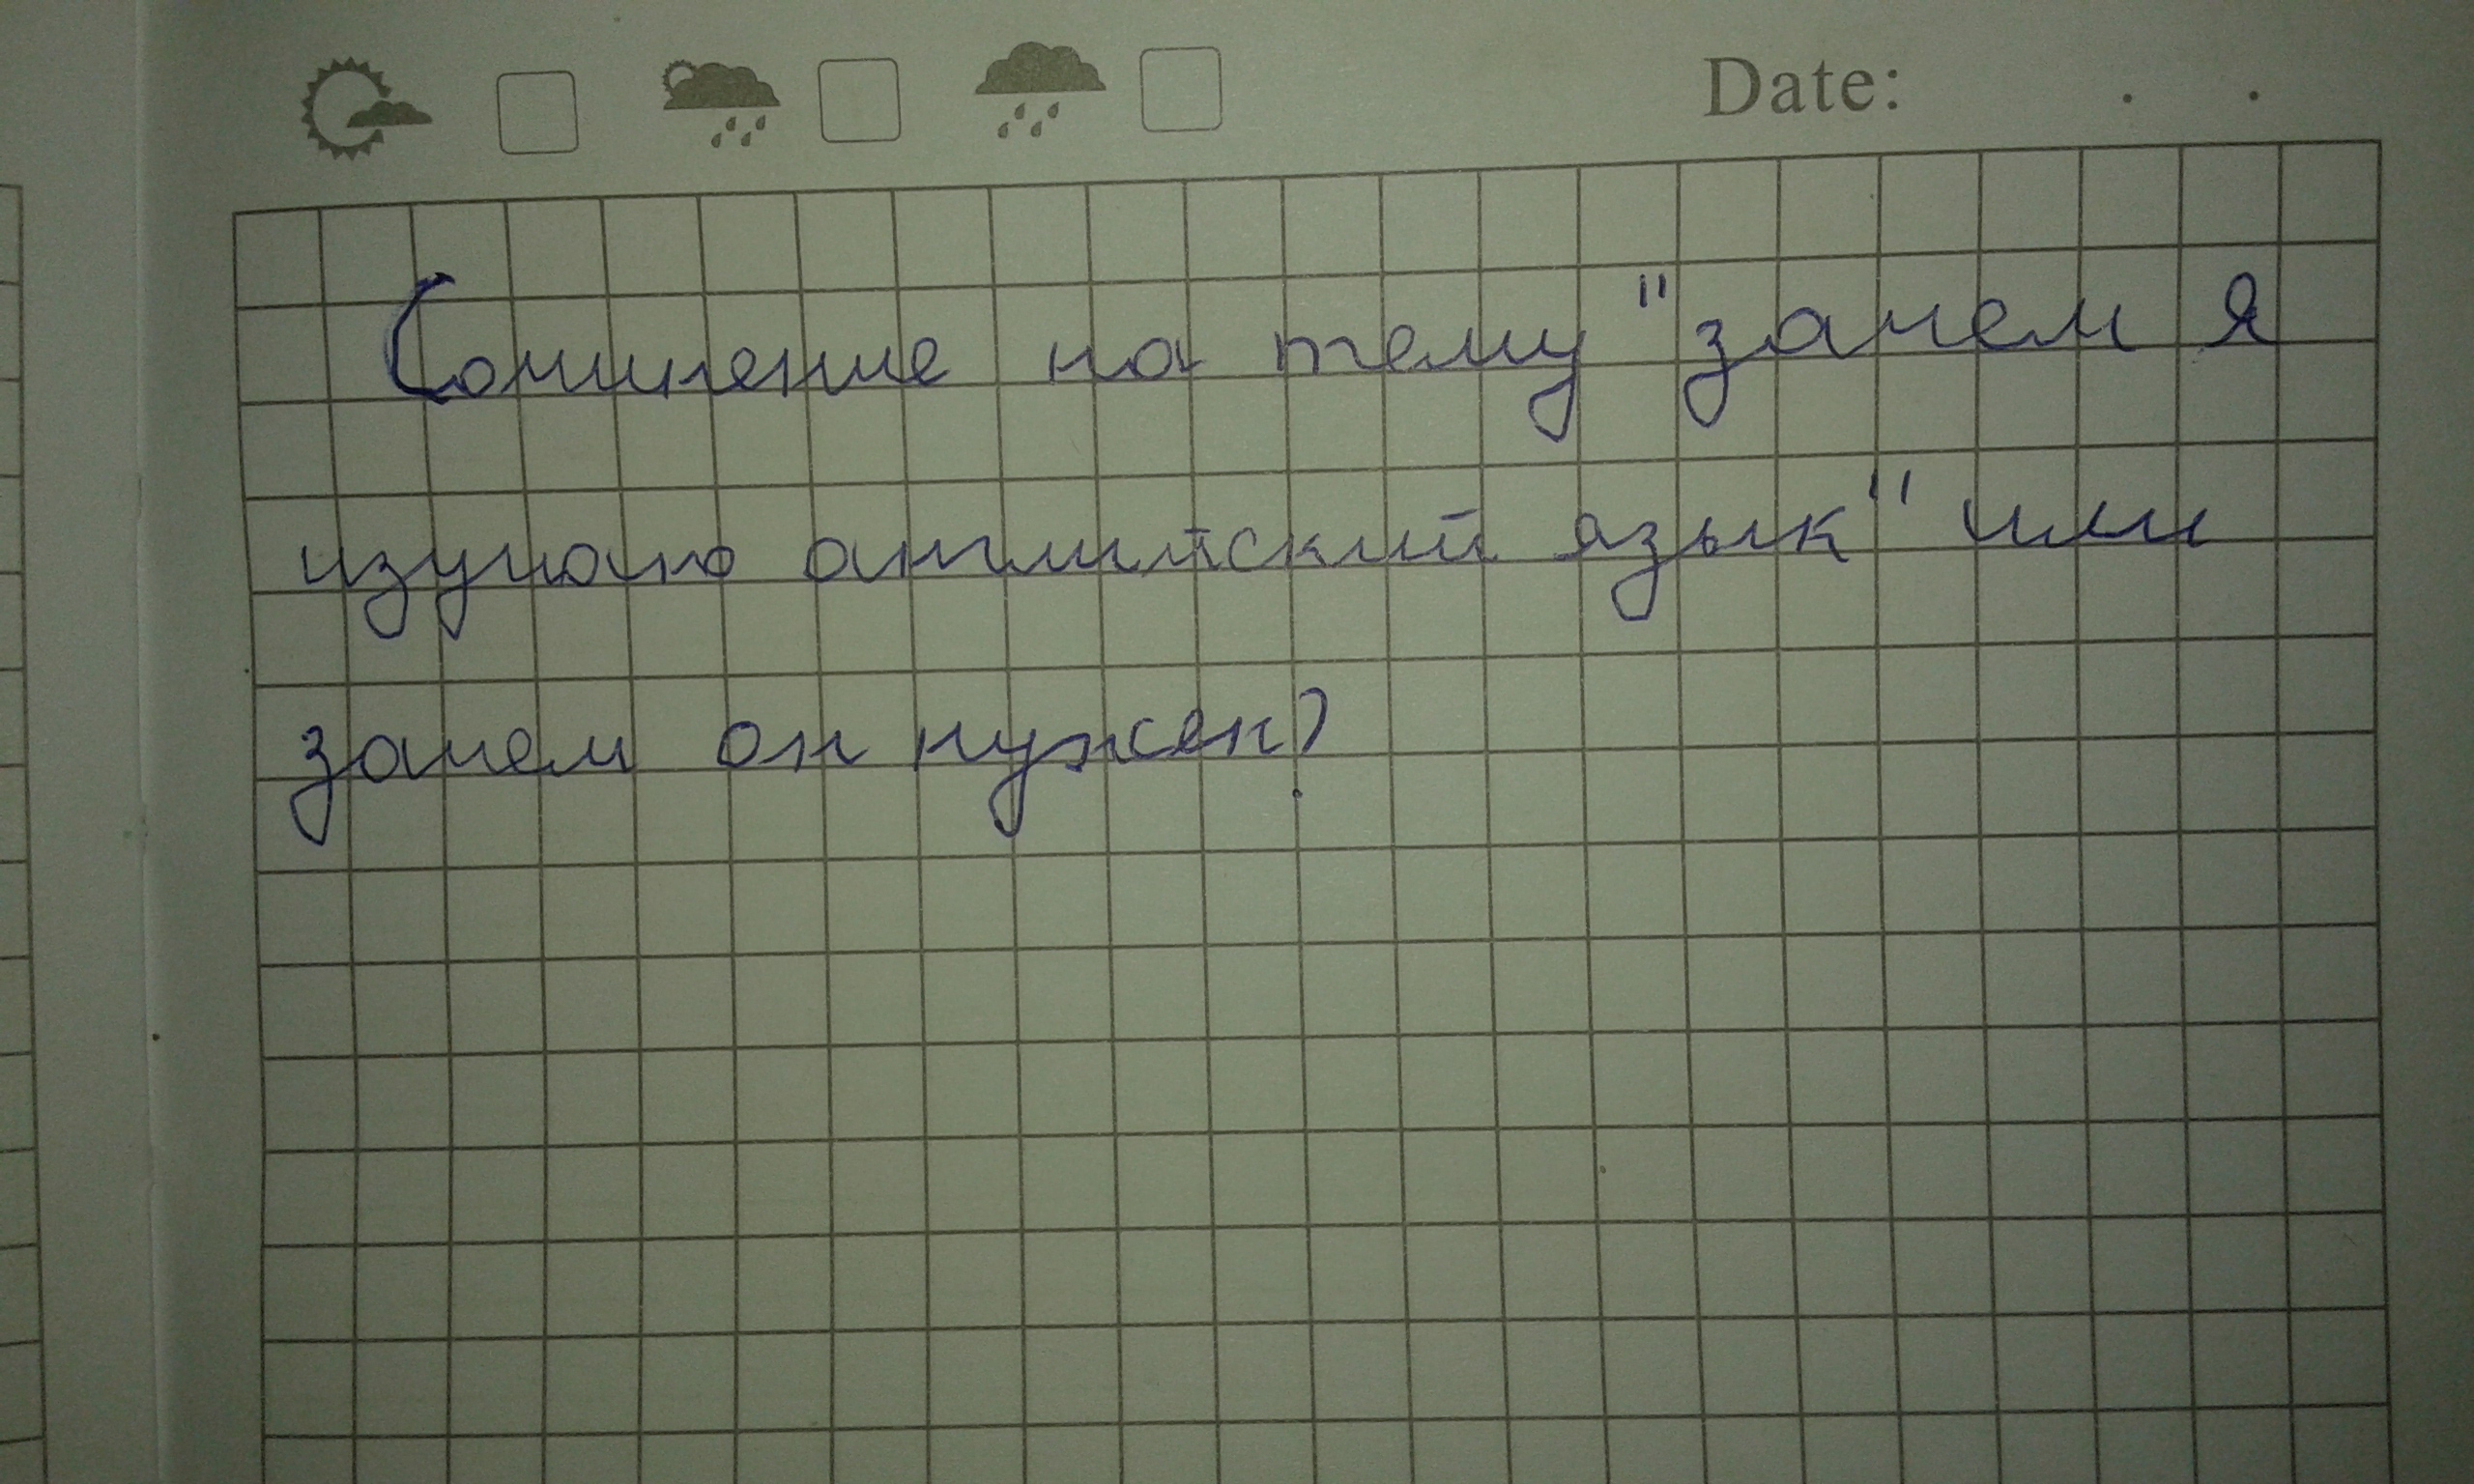 Date: . .
Сочинение на тему "зачем я
изучаю английский язык" или
зачем он нужен?